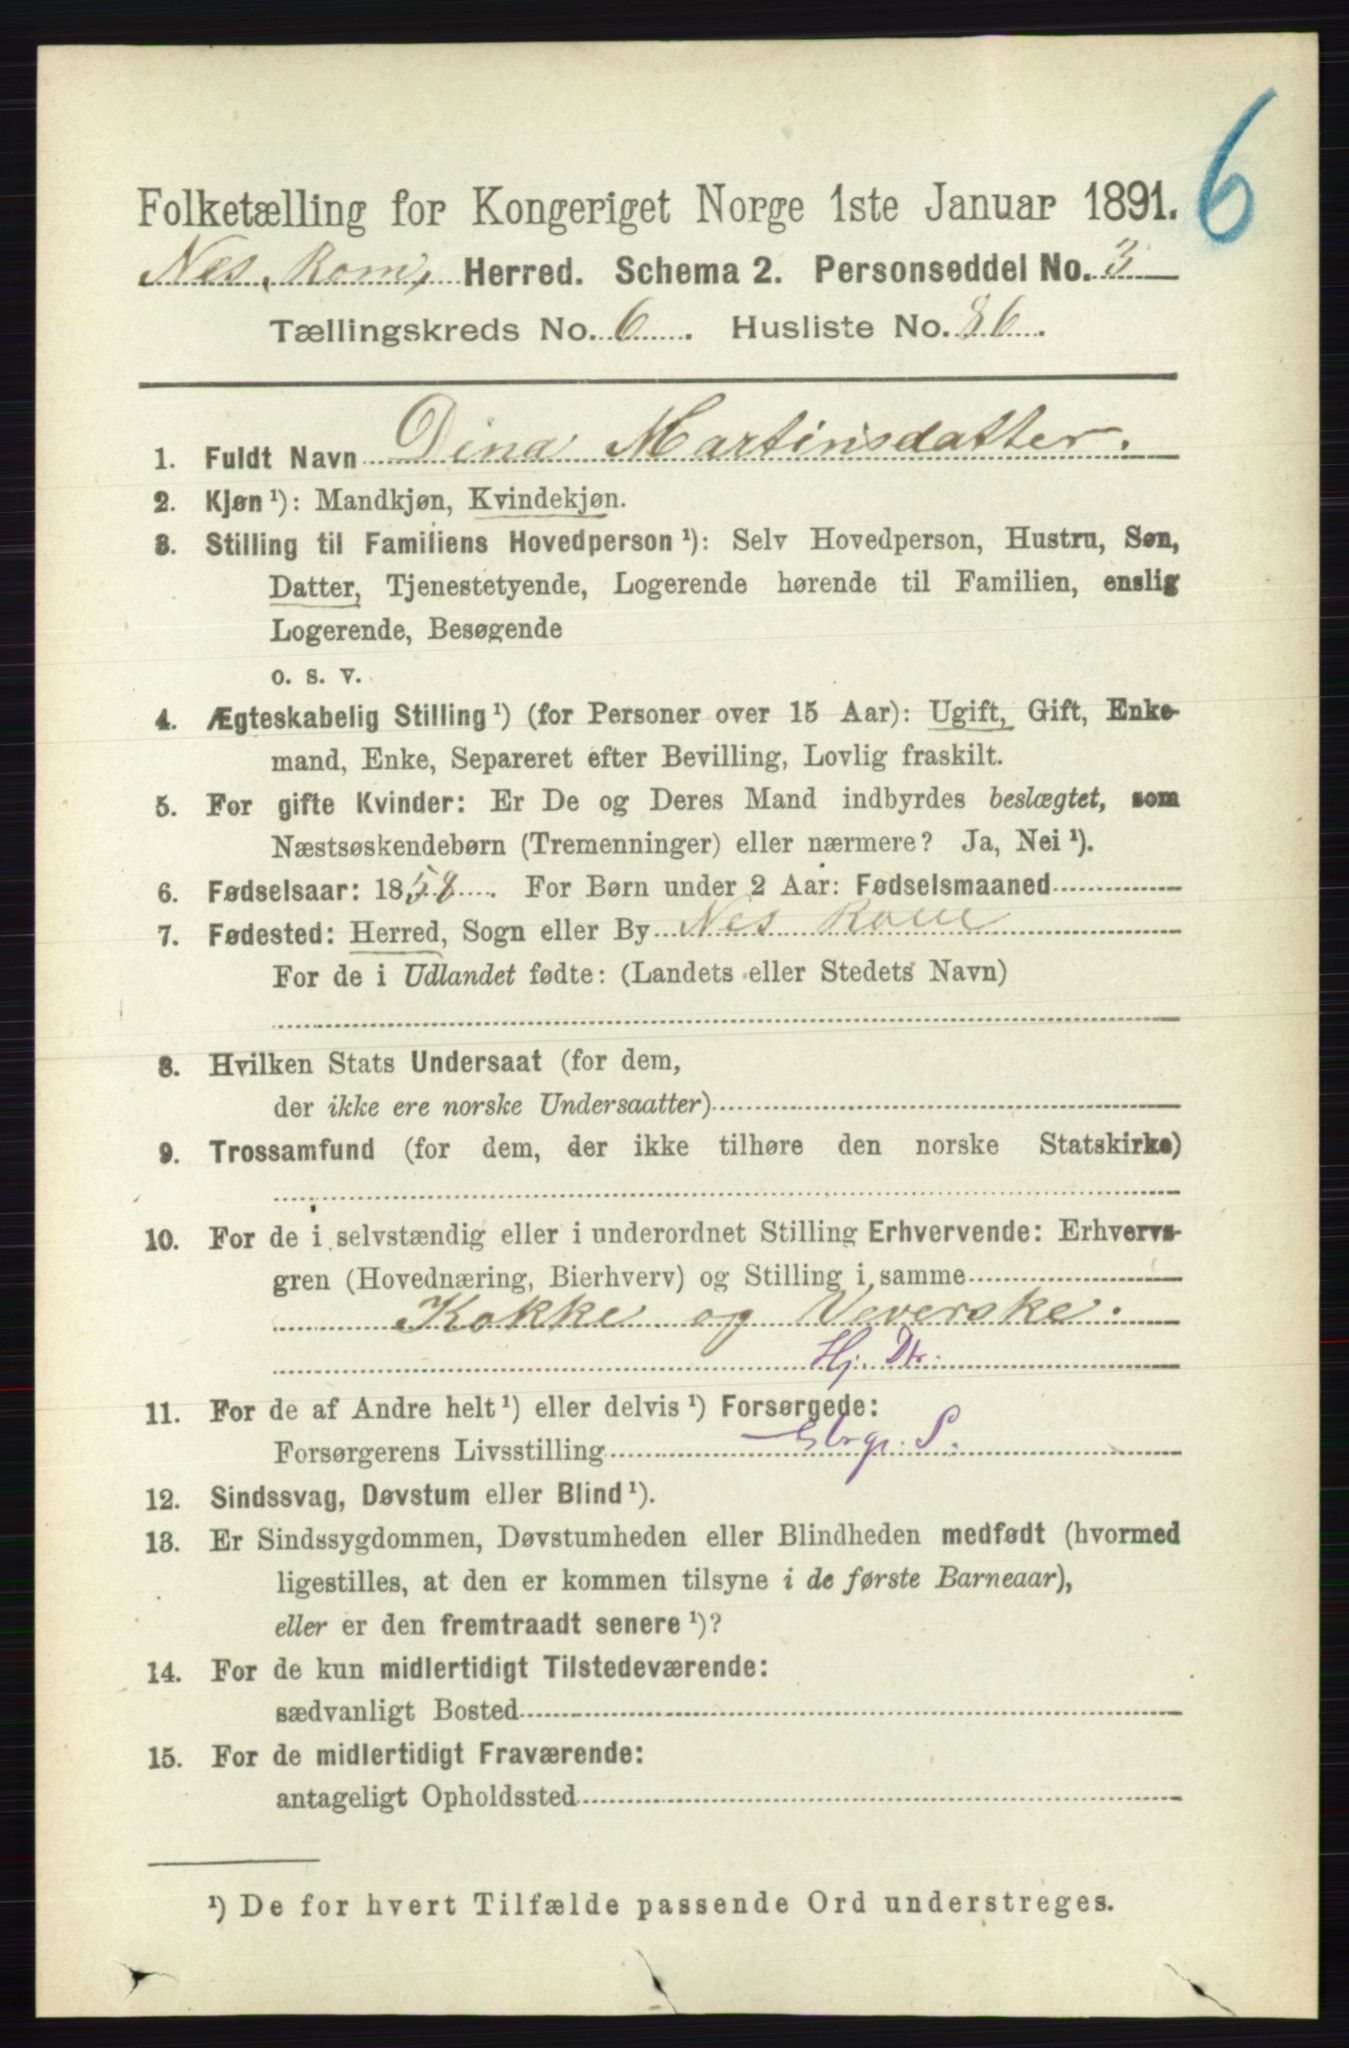 6
Folketælling for Kongeriget Norge 1ste Januar 1891.
Nes, Rom, Herred. Schema 2. Personseddel No. 3
Tællingskreds No. 6. Husliste No. 86.
1. Fuldt Navn Dina Martinsdatter.
2. Kjøn ¹): Mandkjøn, Kvindekjøn.
3. Stilling til Familiens Hovedperson ¹): Selv Hovedperson, Hustru, Søn,
Datter, Tjenestetyende, Logerende hørende til Familien, enslig
Logerende, Besøgende
o. s. v.
4. Ægteskabelig Stilling ¹) (for Personer over 15 Aar): Ugift, Gift, Enke-
mand, Enke, Separeret efter Bevilling, Lovlig fraskilt.
5. For gifte Kvinder: Er De og Deres Mand indbyrdes beslægtet, som
Næstsøskendebørn (Tremenninger) eller nærmere? Ja, Nei ¹).
6. Fødselsaar: 1858. For Børn under 2 Aar: Fødselsmaaned
7. Fødested: Herred, Sogn eller By Nes Rom
For de i Udlandet fødte: (Landets eller Stedets Navn)
8. Hvilken Stats Undersaat (for dem,
der ikke ere norske Undersaatter)
9. Trossamfund (for dem, der ikke tilhøre den norske Statskirke)
10. For de i selvstændig eller i underordnet Stilling Erhvervende: Erhvervs-
gren (Hovednæring, Bierhverv) og Stilling i samme
Kokke og Veverske.
Hj. Dtr.
11. For de af Andre helt ¹) eller delvis ¹) Forsørgede:
Forsørgerens Livsstilling S.
12. Sindssvag, Døvstum eller Blind ¹).
13. Er Sindssygdommen, Døvstumheden eller Blindheden medfødt (hvormed
ligestilles, at den er kommen tilsyne i de første Barneaar),
eller er den fremtraadt senere ¹)?
14. For de kun midlertidigt Tilstedeværende:
sædvanligt Bosted
15. For de midlertidigt Fraværende:
antageligt Opholdssted
¹) De for hvert Tilfælde passende Ord understreges.